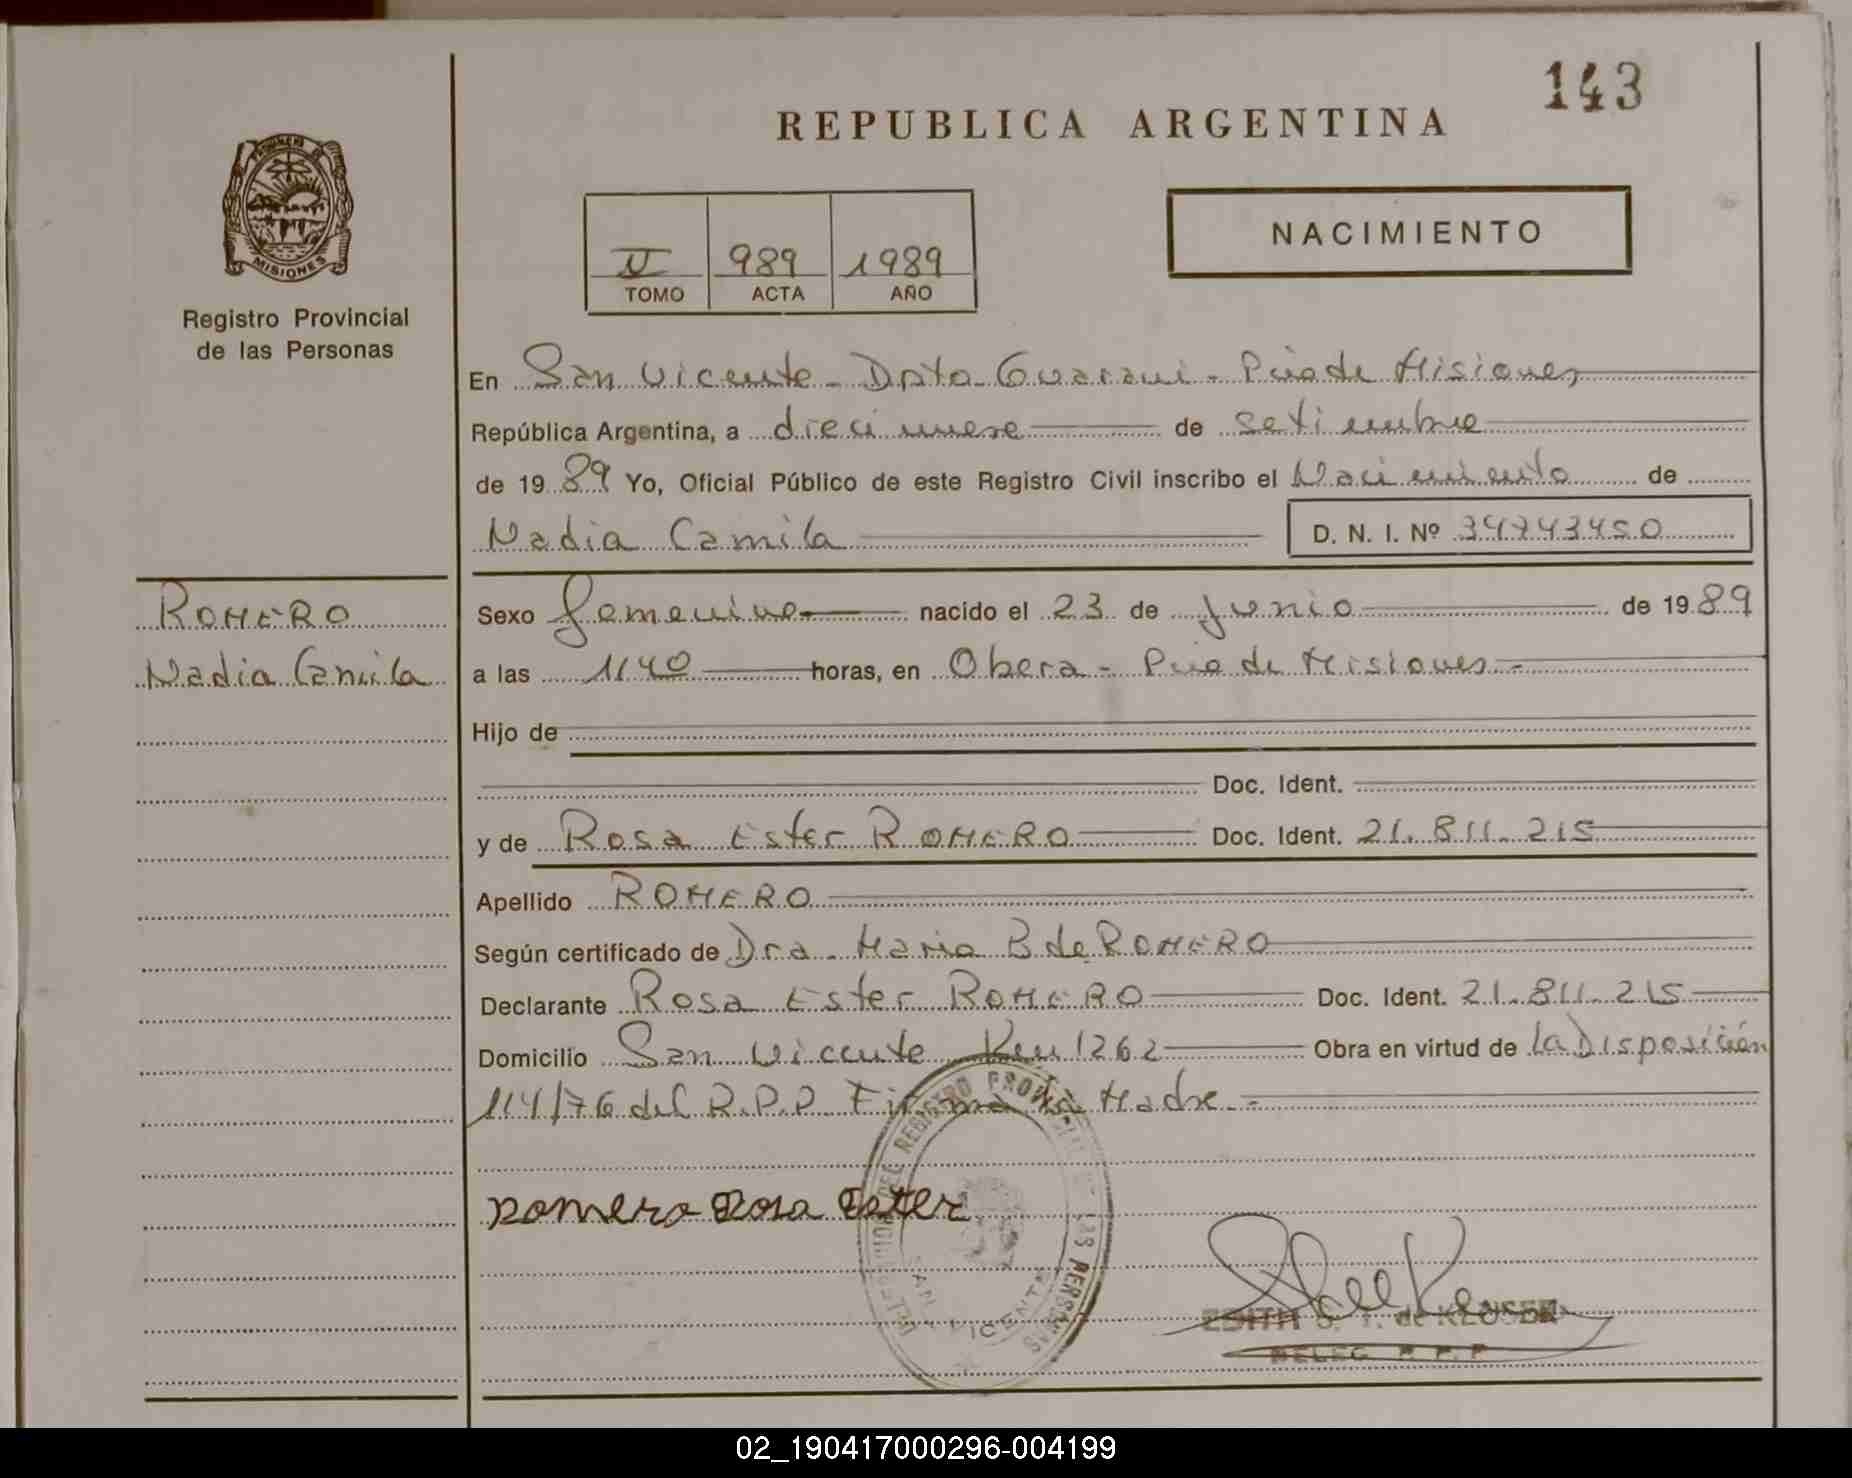 143
REPUBLICA ARGENTINA
NACIMIENTO
PROVINCIA DE
MISIONES
Registro Provincial
de las Personas
II 989 1989
TOMO ACTA AÑO
En San Vicente - Dpto Guarani - Pcia de Misiones
República Argentina, a diecinueve de setiembre
de 1989 Yo, Oficial Público de este Registro Civil inscribo el Nacimiento de
Nadia Camila D. N. I. Nº 34743450
ROMERO
Nadia Camila
Sexo Femenino nacido el 23 de Junio de 1989
a las 1140 horas, en Obera - Pcia de Misiones -
Hijo de
Doc. Ident.
y de Rosa Ester ROMERO Doc. Ident. 21.811.215
Apellido ROMERO
Según certificado de Dra. Maria B de ROMERO
Declarante Rosa Ester ROMERO Doc. Ident. 21.811.215
Domicilio San Vicente Km 1262 Obra en virtud de La Disposición
114/76 del R.P.P Firma la Madre.-
Romero Rosa Ester
DEL REGISTRO PROVINCIAL DE LAS PERSONAS
SAN VICENTE
EDITH S. T. de KLUSER
DELEG R.P.P
02_190417000296-004199